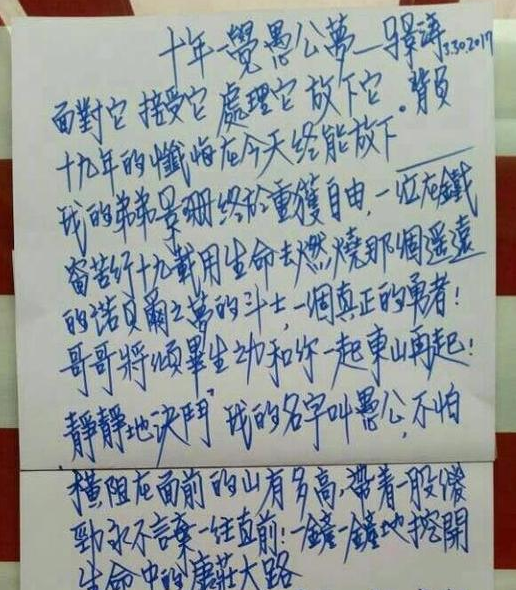 十年一覺愚公夢—景濤3.30.2017
面對它 接受它 處理它 放下它。背負
十九年的懺悔在今天終能放下
我的弟弟景珊終於重獲自由,一位在鐵
窗苦行十九載用生命去燃燒那個遥遠
的諾貝爾之夢的斗士,一個真正的勇者!
哥哥將傾畢生之功和你一起東山再起!
靜靜地決鬥 我的名字叫愚公,不怕
橫阻在面前的山有多高,帶着一股傻
勁永不言棄一往直前!一鏟一鏟地挖開
生命中的康莊大路